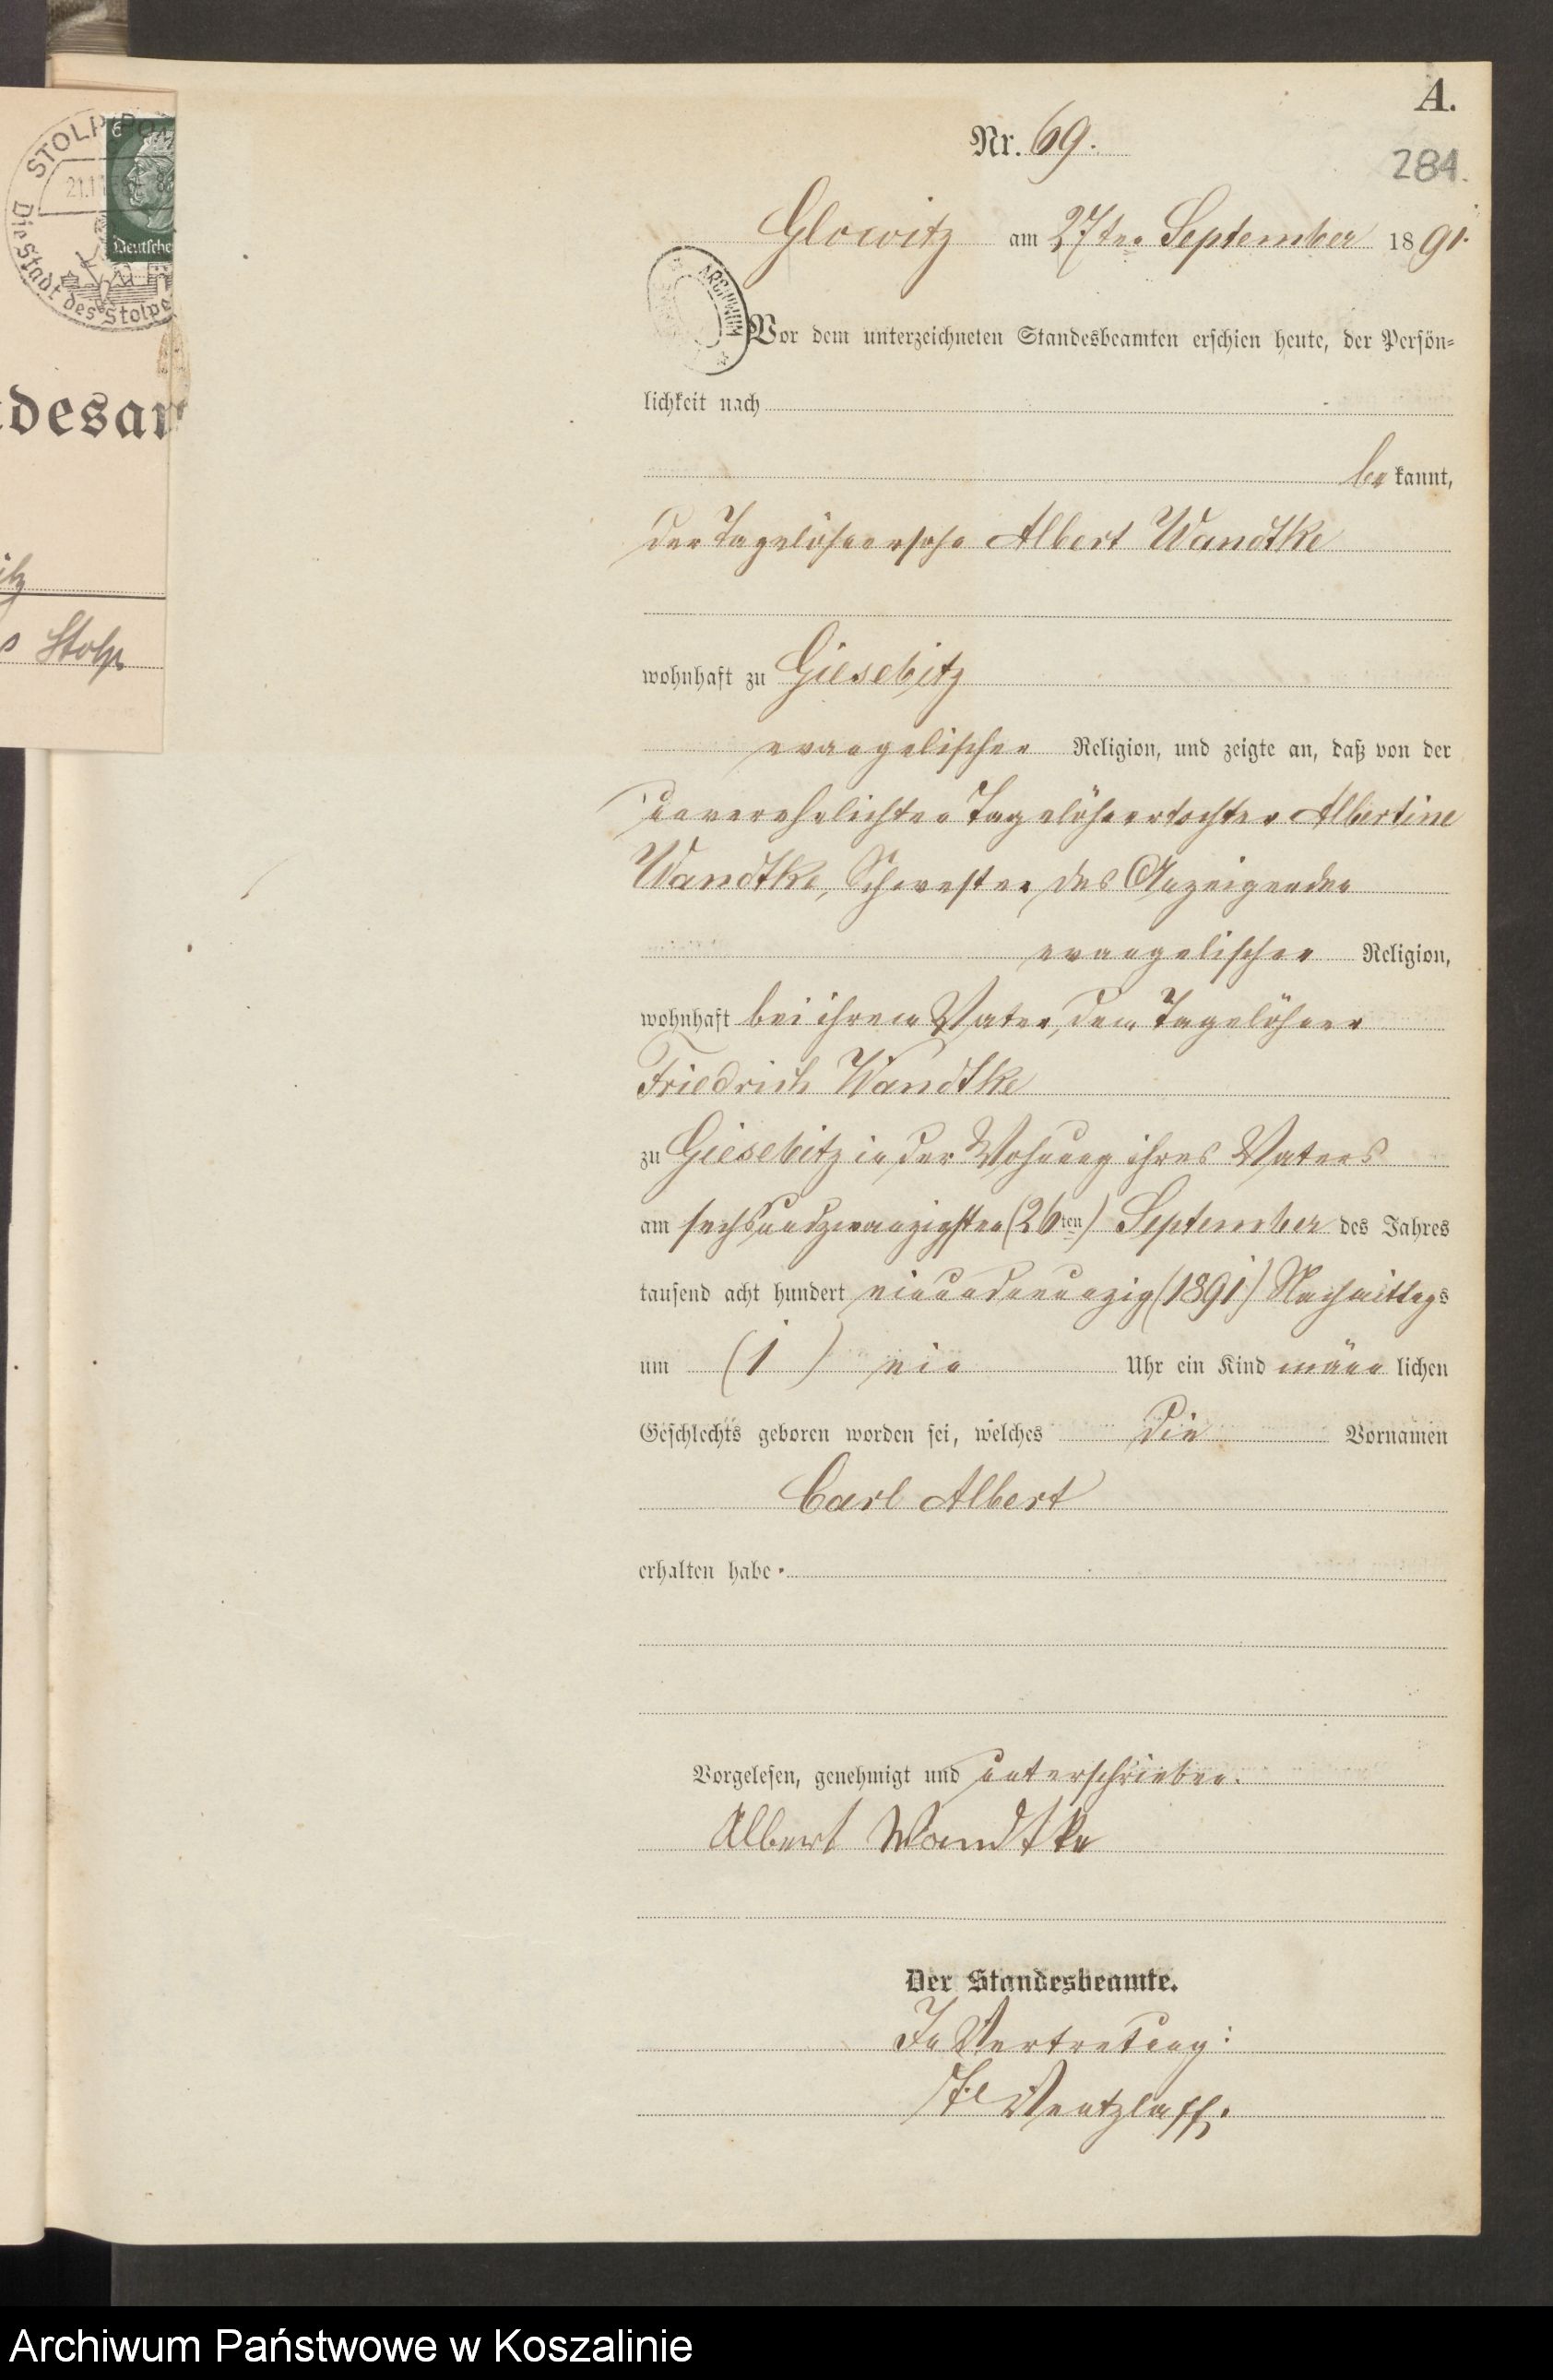 A.
Nr. 69.
284.
Glowitz am 27ten September 1891.
Vor dem unterzeichneten Standesbeamten erschien heute, der Persön-
lichkeit nach
be kannt,
der Tagelöhnersohn Albert Wandtke
wohnhaft zu Giesebitz
evangelischer Religion, und zeigte an, daß von der
unverehelichten Tagelöhnertochter Albertine
Wandtke, Schwester des Anzeigenden
evangelischer Religion,
wohnhaft bei ihrem Vater, dem Tagelöhner
Friedrich Wandtke
zu Giesebitz in der Wohnung ihres Vaters
am sechsundzwanzigsten (26ten) September des Jahres
tausend acht hundert einundneunzig (1891) Nachmittags
um (1) ein Uhr ein Kind männ lichen
Geschlechts geboren worden sei, welches die Vornamen
Carl Albert
erhalten habe.
Vorgelesen, genehmigt und unterschrieben.
Albert Wandtke
Der Standesbeamte.
In Vertretung:
Wentzlaff.
STOLP POM
21.11
6
Deutsche
Die Stadt des Stolpe
desar
itz
s Stolp
ARCHIWUM
Archiwum Państwowe w Koszalinie